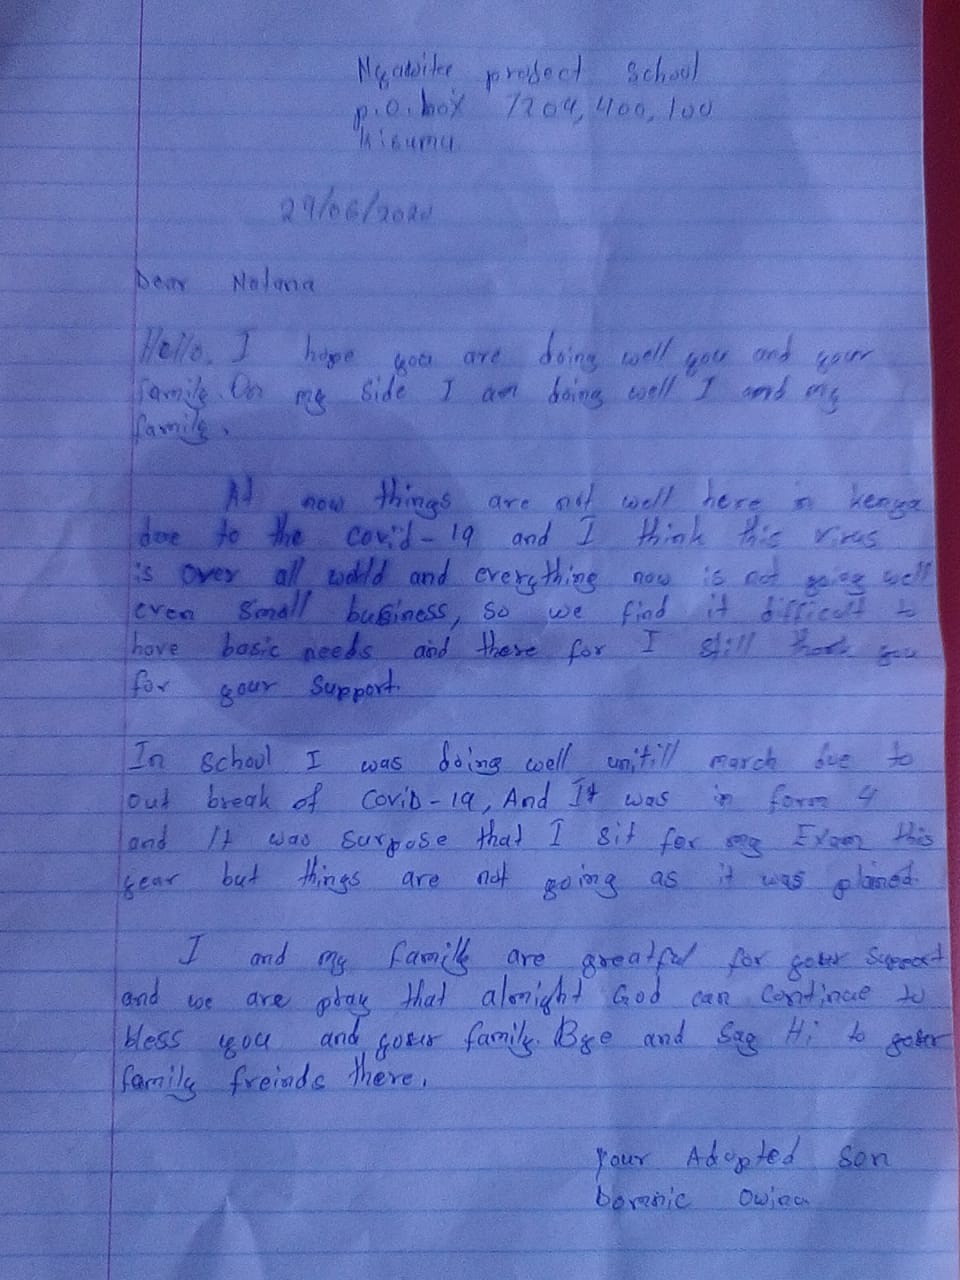 project school
p.o. box 7204, 400, 100
Kisumu
29/06/2020
Dear Natana
Hello. I hope you are doing well you and your
family. On my side I am doing well I and my
family.
At now things are not well here in kenya
due to the covid-19 and I think this virus
is over all world and everything now is not going well
even small business, so we find it difficult to
have basic needs and there for I still thank you
for your support.
In school I was doing well unitill march due to
out break of Covid-19, And It was in form 4
and It was surpose that I sit for my Exam this
year but things are not going as it was planed.
I and my family are greatful for your support
and we are pray that almight God can continue to
bless you and your family. Bye and say Hi to your
family freinds there.
Your Adopted son
Dominic